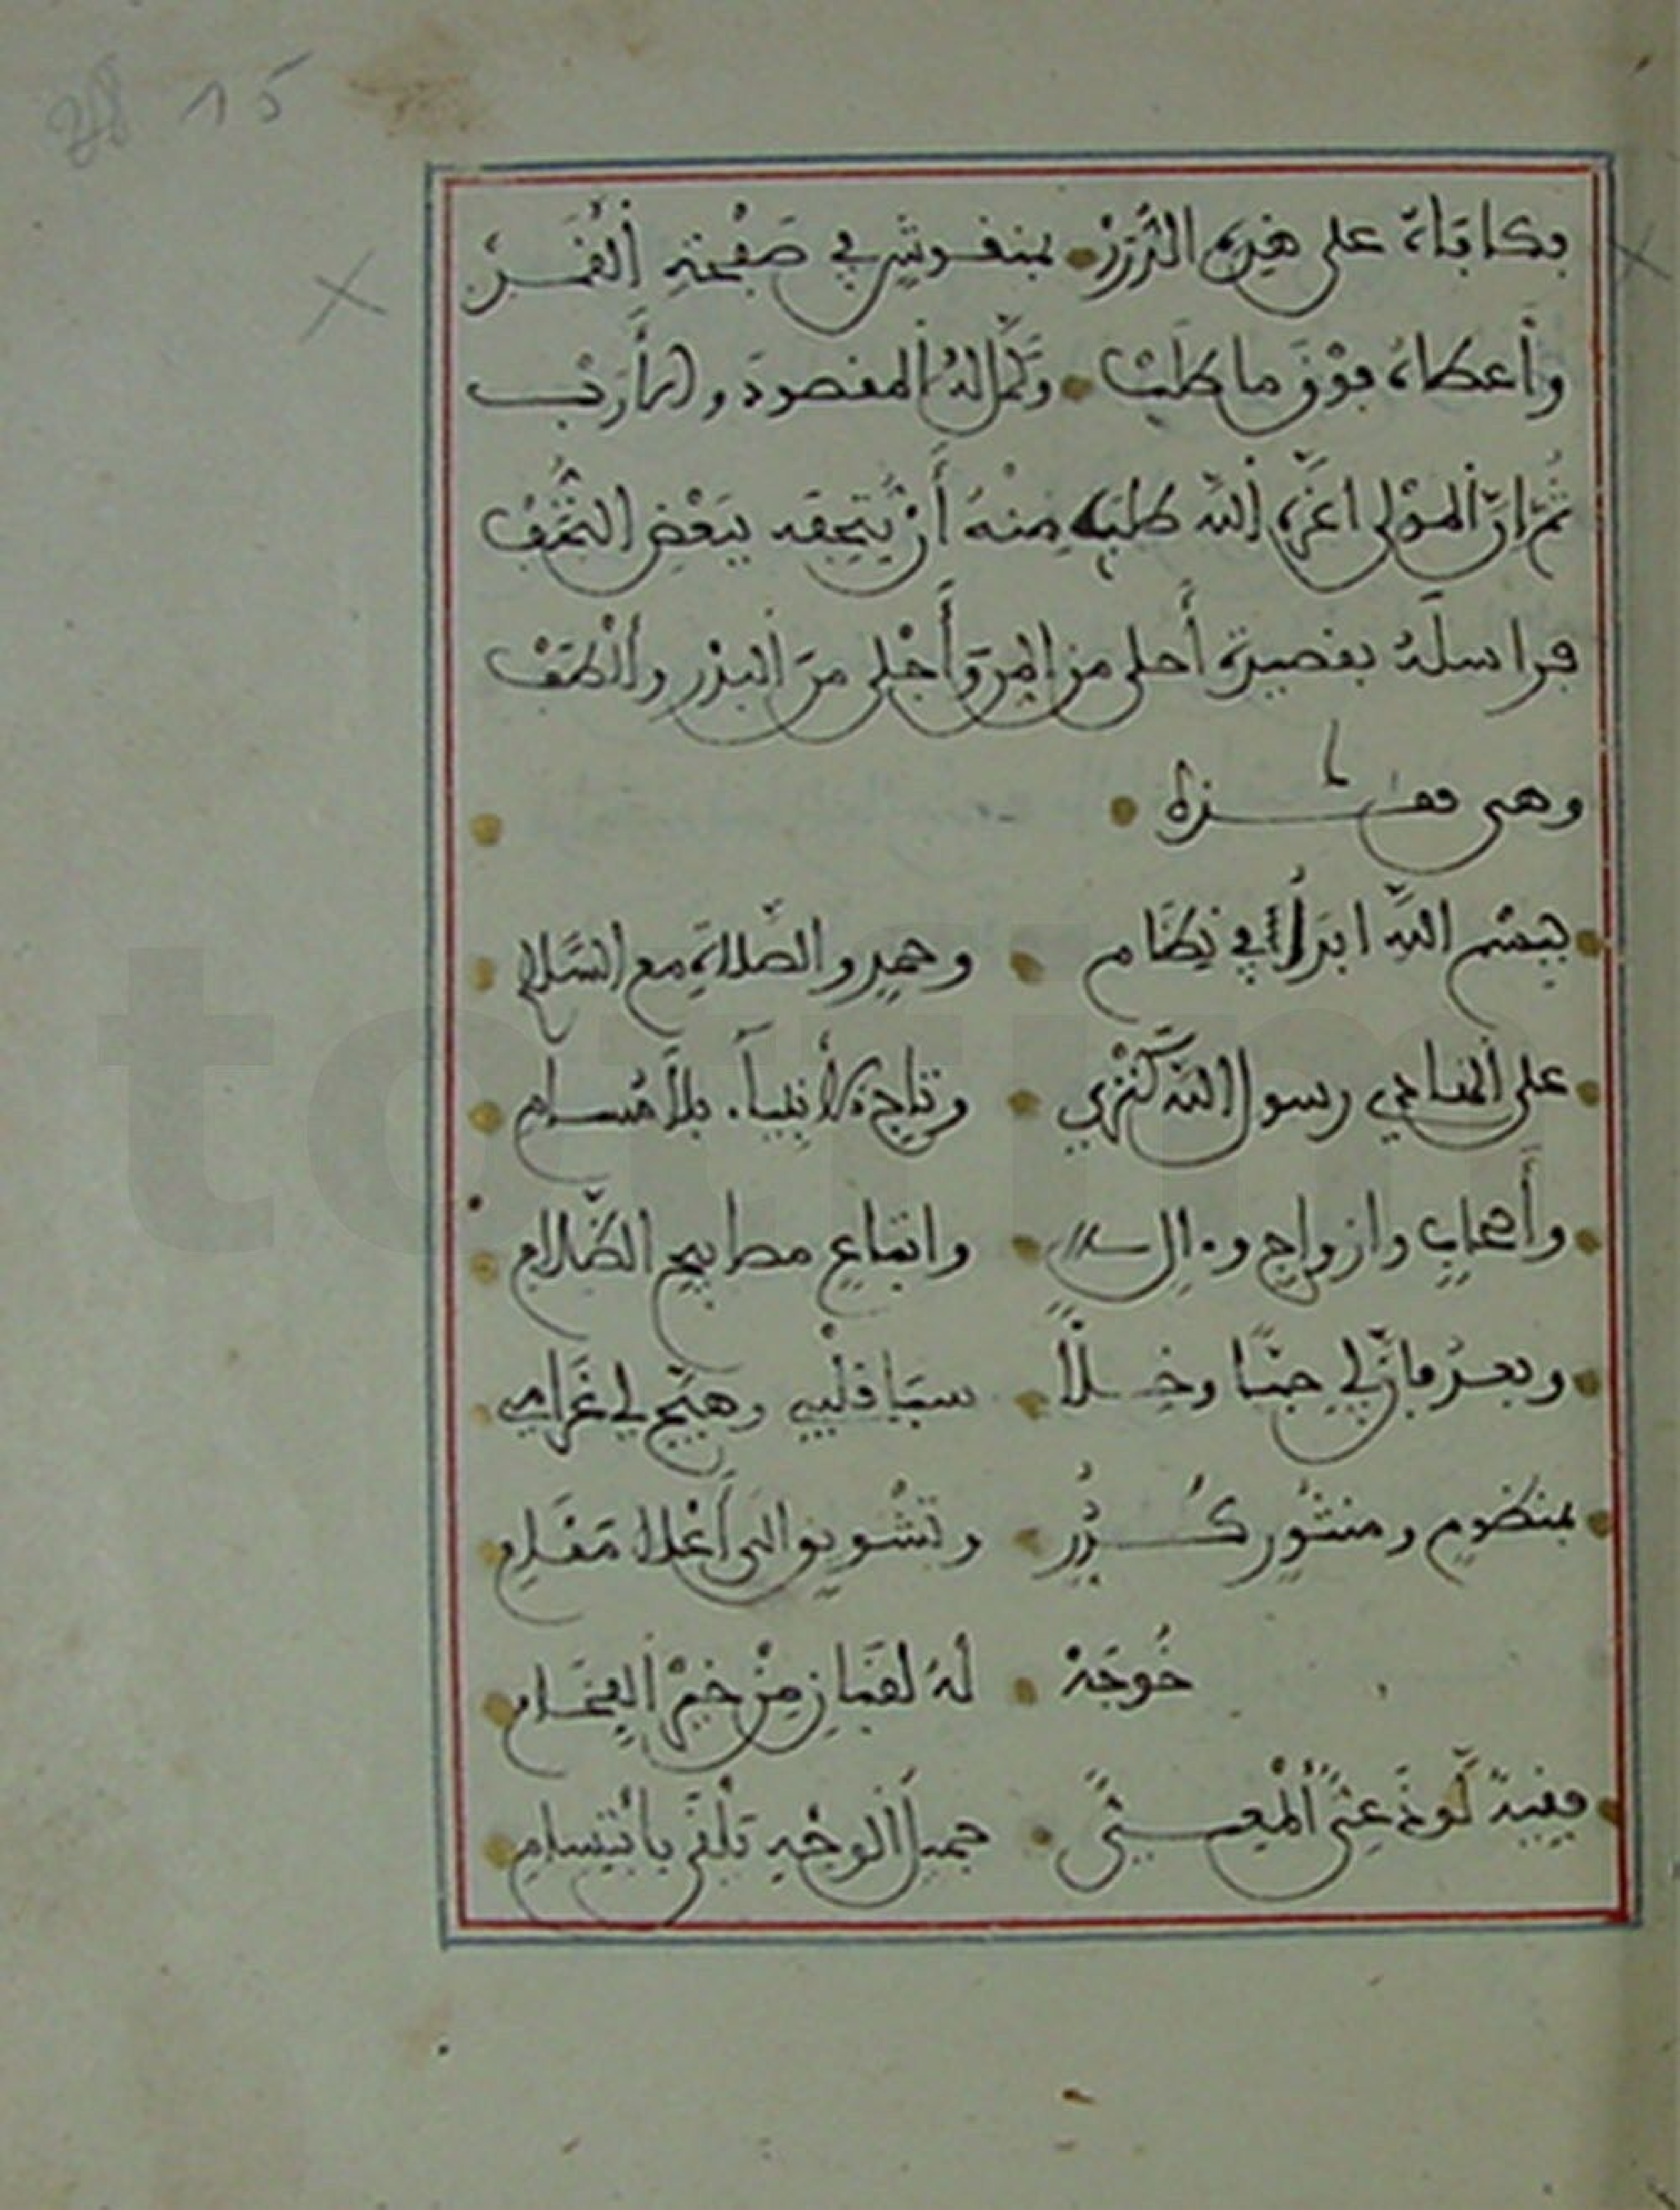 28 15
بكافاه على هذه الدرر بمنقوش في صفحة القمر
وأعطاه فوق ما طلب وكمل له المقصود والأرب
ثم ان المولى اعزه الله طلب منه أن يتحفه ببعض التحف
فراسله بقصيدة أحلى من وأجلى من البدر وألطف
وهي هذه
ببسم الله ابدأ في نظام وحمد والصلاة مع السلام
على الماحي رسول الله كنزي وتاج الأنبياء بلا
وأصحاب وازواج وءال واتباع مصابيح الظلام
وبعد فان لي حبا وخلا سبا قلبي وهيج لي غرامي
بمنظوم ومنثور كدر وتشويق الى أعلا مقام
خوجة له لقمان من خير الفخام
فقيه لوذعي ألمعي جميل الوجه تلقى بابتسام
totfim